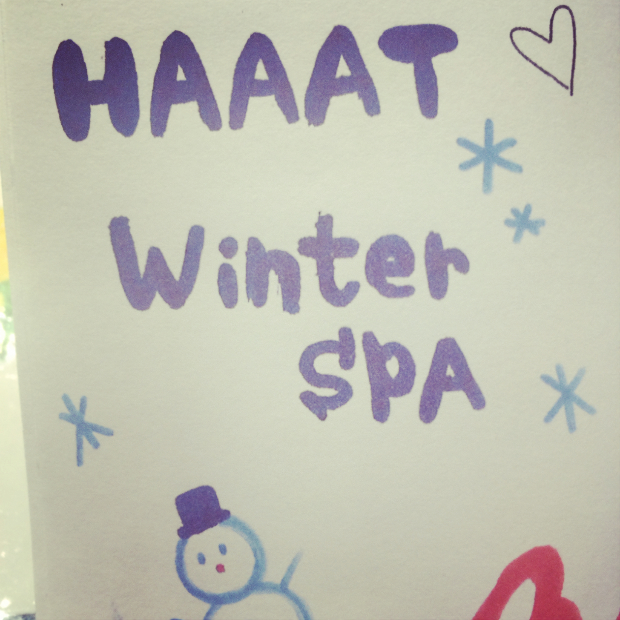 HAAAT
Winter
SPA